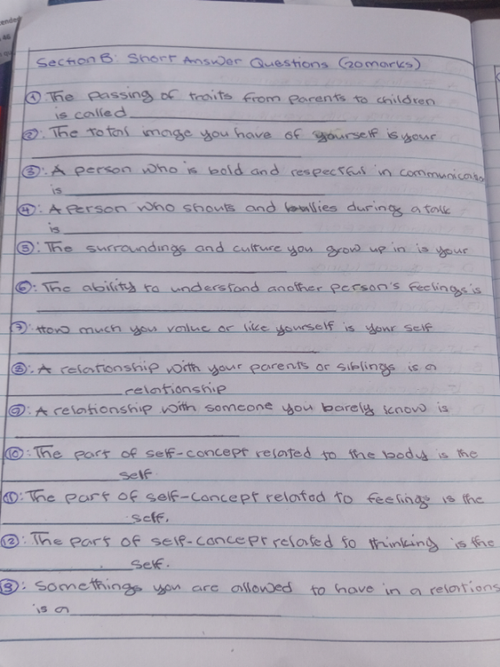 Section B: Short Answer Questions (20marks)
① The passing of traits from parents to children
is called
②: The total image you have of yourself is your
③: A person who is bold and respectful in communicating
is
④: A person who shouts and bullies during a talk
is
⑤: The surroundings and culture you grow up in is your
⑥: The ability to understand another person's feelings is
⑦: How much you value or like yourself is your self
⑧: A relationship with your parents or siblings is a
relationship
⑨: A relationship with someone you barely know is
⑩: The part of self-concept related to the body is the
self
⑪: The part of self-concept related to feelings is the
self.
⑫: The part of self-concept related to thinking is the
self.
⑬: Somethings you are allowed to have in a relations
is a